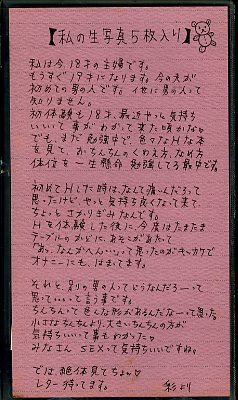 【私の生写真5枚入り】
私は今、18才の主婦です。
もうすぐ19才になります。今の夫が
初めての男の人です。他に男の人って
知りません。
初体験も18才、最近やっと気持ち
いいって事がわかって来た頃かな。
でも、まだ勉強中で、色々なHな本
を見て、おちんちんのくわえ方、なめ方
体位を一生懸命勉強してる最中です。
初めてHした時は、なんて痛いんだろって
思ったけど、やっと気持ち良くなって来て、
ちょっとさかりぎみなんです。
Hを体験した後に、今度はたまたま
テーブルのかどに、あそこがあたって
あっ、なんかへん・・って思ったのがキッカケで
オナニーにも、はまってます。
それと、別の男の人ってどうなんだろーって
思って・・・って言う事です。
ちんちんって色んな形があるんだな―って思った。
小さなちんちんより、大きいちんちんの方が
気持ちいいって事もわかった♡
みなさん SEXって気持ちいいですね。
では、絶体見てちょ♡
レター待ってます。 彩より